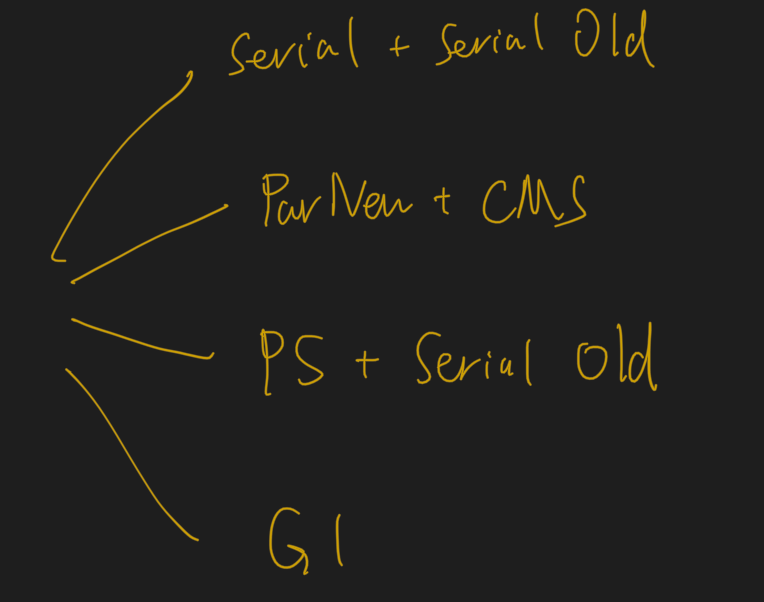 Serial + Serial Old
ParNew + CMS
PS + Serial Old
G1